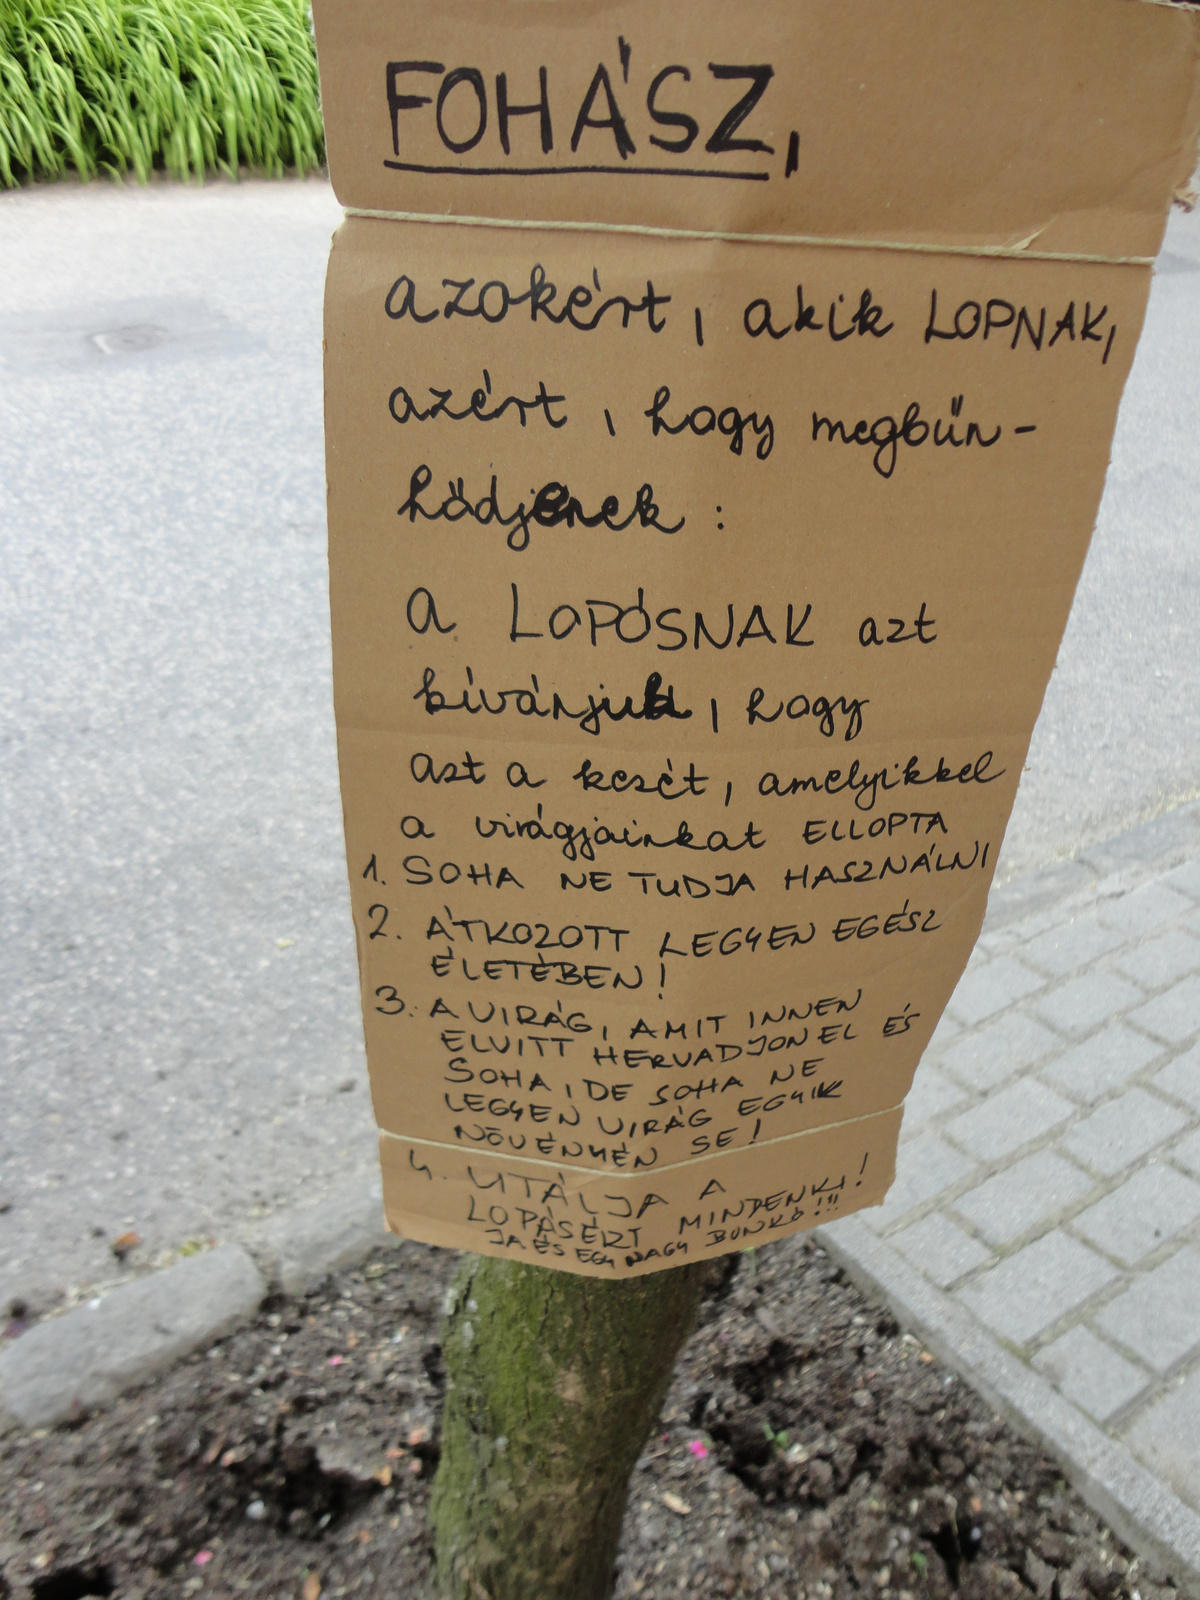 FOHÁSZ,
azokért, akik LOPNAK,
azért, hogy megbűn-
hődjenek :
a LOPÓSNAK azt
kívánjuk, hogy
azt a kezét, amelyikkel
a virágjainkat ELLOPTA
1. SOHA NE TUDJA HASZNÁLNI
2. ÁTKOZOTT LEGYEN EGÉSZ
ÉLETÉBEN!
3. A VIRÁG, AMIT INNEN
ELVITT HERVADJON EL ÉS
SOHA, DE SOHA NE
LEGYEN VIRÁG EGYIK
NÖVÉNYÉN SE!
4. UTÁLJA A
LOPÁSÉRT MINDENKI!
JA ÉS EGY NAGY BUNKÓ!!!